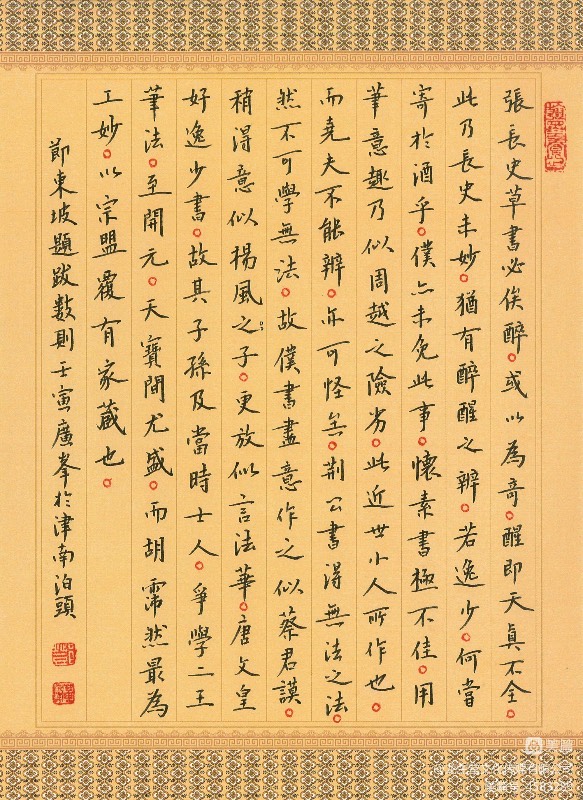 張長史草書必俟醉。或以為奇。醒即天真不全。
此乃長史未妙。猶有醉醒之辨。若逸少。何嘗
寄於酒乎。僕亦未免此事。懷素書極不佳。用
筆意趣乃似周越之險劣。此近世小人所作也。
而堯夫不能辨。亦可怪矣。荆公書得無法之法。
然不可學無法。故僕書盡意作之似蔡君謨。
稍得意似楊風之子。更放似言法華。唐文皇
好逸少書。故其子孫及當時士人。爭學二王
筆法。至開元。天寶間尤盛。而胡霈然最為
工妙。以宗盟覆有家藏也。
節東坡題跋數則壬寅廣峯於津南泊頭
美篇